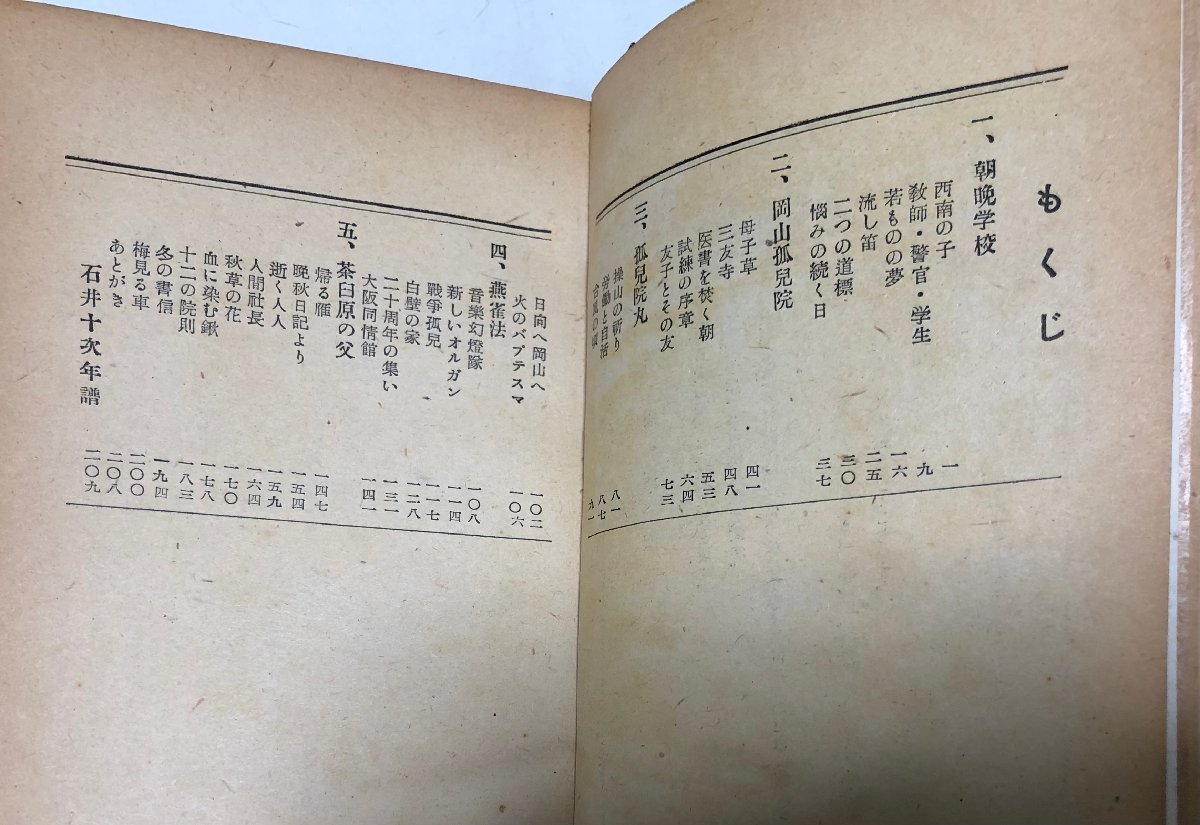 もくじ
一、朝晩学校
西南の子 一
教師・警官・学生 九
若ものの夢 一六
流し笛 二五
二つの道標 三〇
悩みの続く日 三七
二、岡山孤兒院
母子草 四一
三友寺 四八
医書を焚く朝 五三
試練の序章 六四
友子とその友 七三
三、孤兒院丸
操山の祈り 八一
労働と自活 八七
九一
日向へ岡山へ 一〇二
火のバプテスマ 一〇六
四、燕雀法
音樂幻燈隊 一〇八
新しいオルガン 一一四
戰爭孤兒 一一七
白壁の家 一二八
二十周年の集い 一三一
大阪同情館 一四一
五、茶臼原の父
帰る雁 一四七
晩秋日記より 一五四
逝く人人 一五九
人間社長 一六四
秋草の花 一七〇
血に染む鍬 一七八
十二の院則 一八三
冬の書信 一九四
梅見る車 二〇〇
あとがき 二〇八
石井十次年譜 二〇九